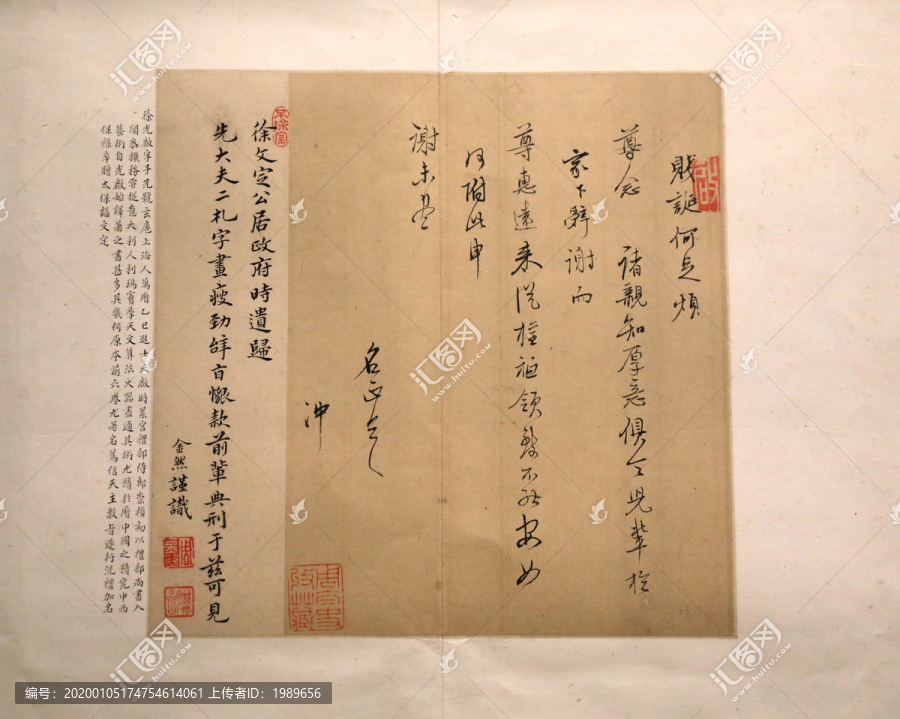 賤誕何足煩
尊念 諸親知厚意俱令兒輩於
家下辭謝而
尊惠遠來從權祗領殊不能安如
何附此申
謝未盡
名正令人
沖
徐文定公居政府時遺歸
先大夫二札字畫瘦勁辭旨懶款前輩典刑于茲可見
金然謹識
徐光啟字子先號玄扈上海人萬曆乙巳進士天啟時累官禮部侍郎崇禎初以禮部尚書入
閣參機務嘗從意大利人利瑪竇學天文算法火器盡通其術尤精於曆中國之精究中西
曆術自光啟始譯著之書甚多其幾何原本前六卷尤著名篤信天主教旨遵行洗禮加名
保祿卒贈太保謚文定
汇图网
www.huitu.com
编号:20200105174754614061 上传者ID:1989656